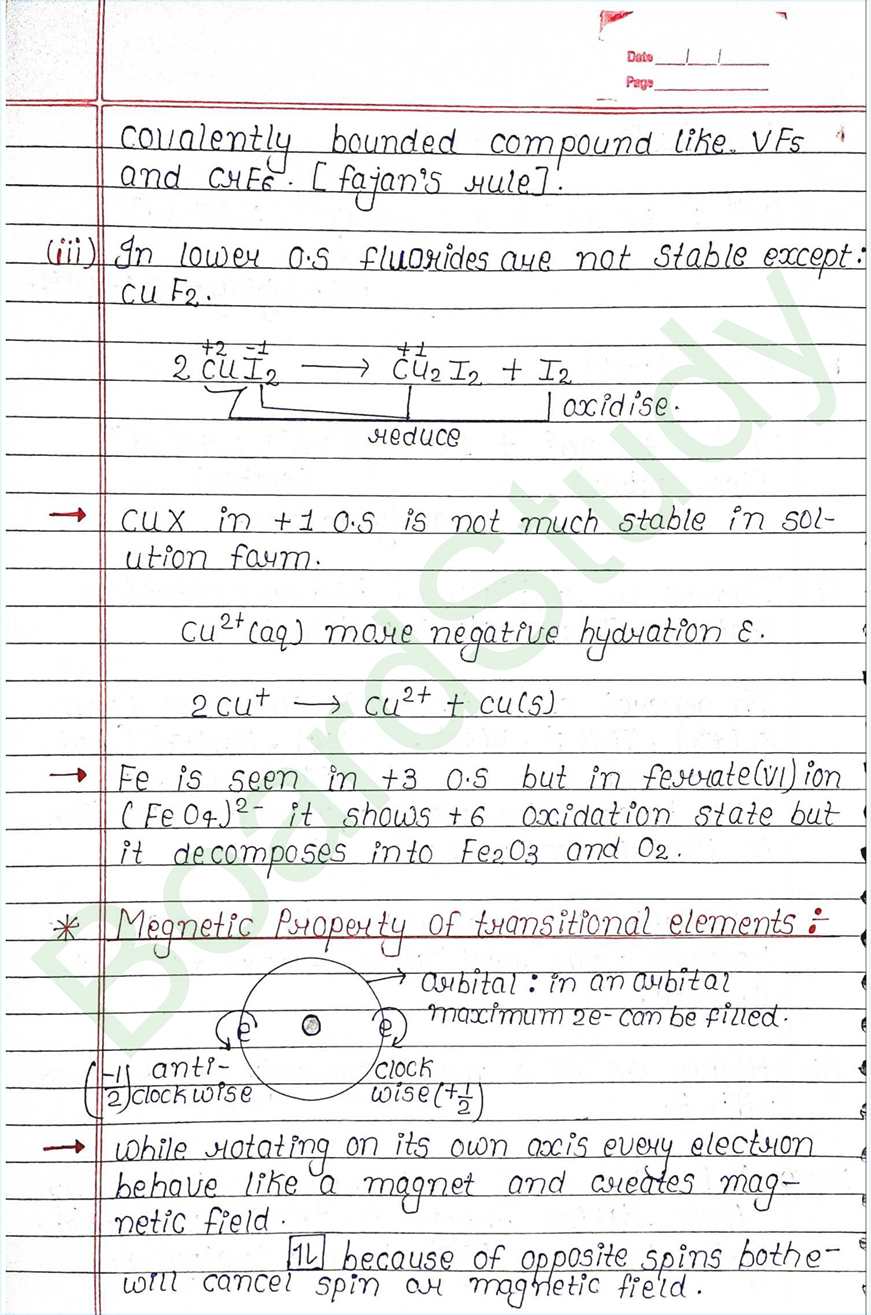 Date __/__/__
Page
covalently bounded compound like. VF5
and CrF6. [fajan's rule].
(iii) In lower O.S fluorides are not stable except:
CuF2.
+2 -1 +1
2 CuI2 ⟶ Cu2I2 + I2
oxidise.
reduce
→ CuX in +1 O.S is not much stable in sol-
ution form.
Cu²⁺(aq) more negative hydration ε.
2Cu⁺ ⟶ Cu²⁺ + Cu(s)
→ Fe is seen in +3 O.S but in ferrate(VI) ion
(FeO4)²⁻ it shows +6 oxidation state but
it decomposes into Fe2O3 and O2.
* Megnetic Property of transitional elements :-
→ orbital : in an orbital
maximum 2e- can be filled.
e e
(-1/2) anti- clock
clockwise wise(+1/2)
→ while rotating on its own axis every electron
behave like a magnet and creates mag-
netic field.
1L because of opposite spins bothe-
will cancel spin or magnetic field.
BoardStudy